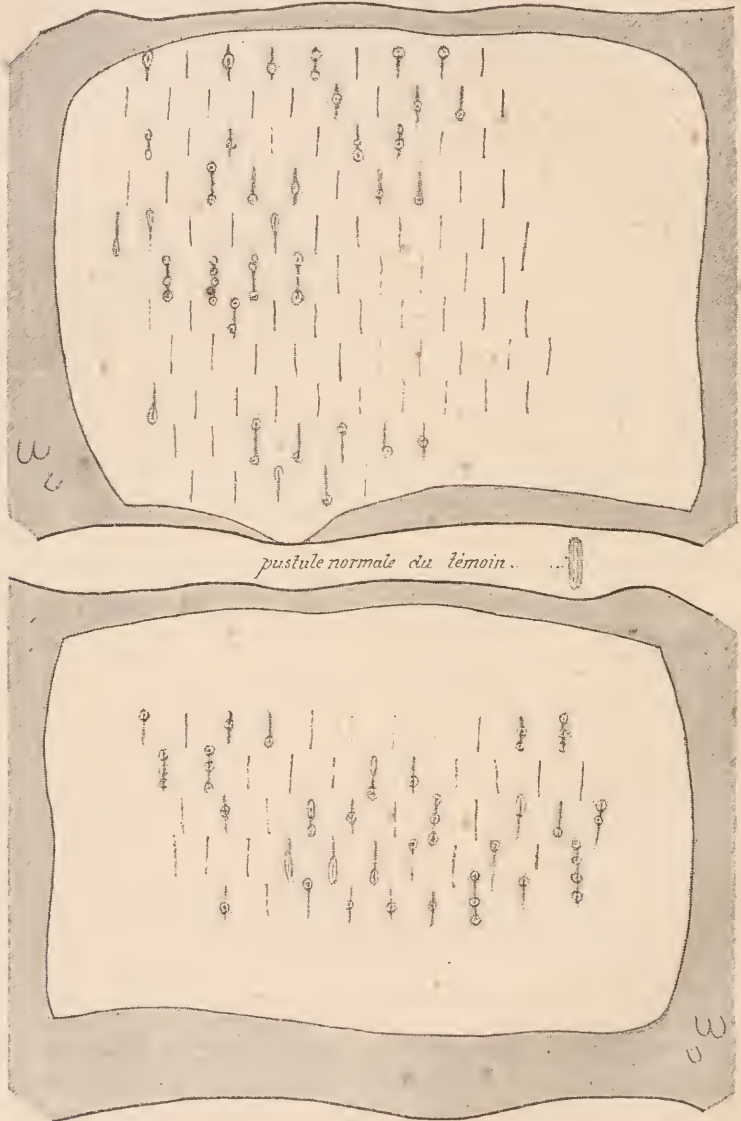 pustule normale du témoin.. ...